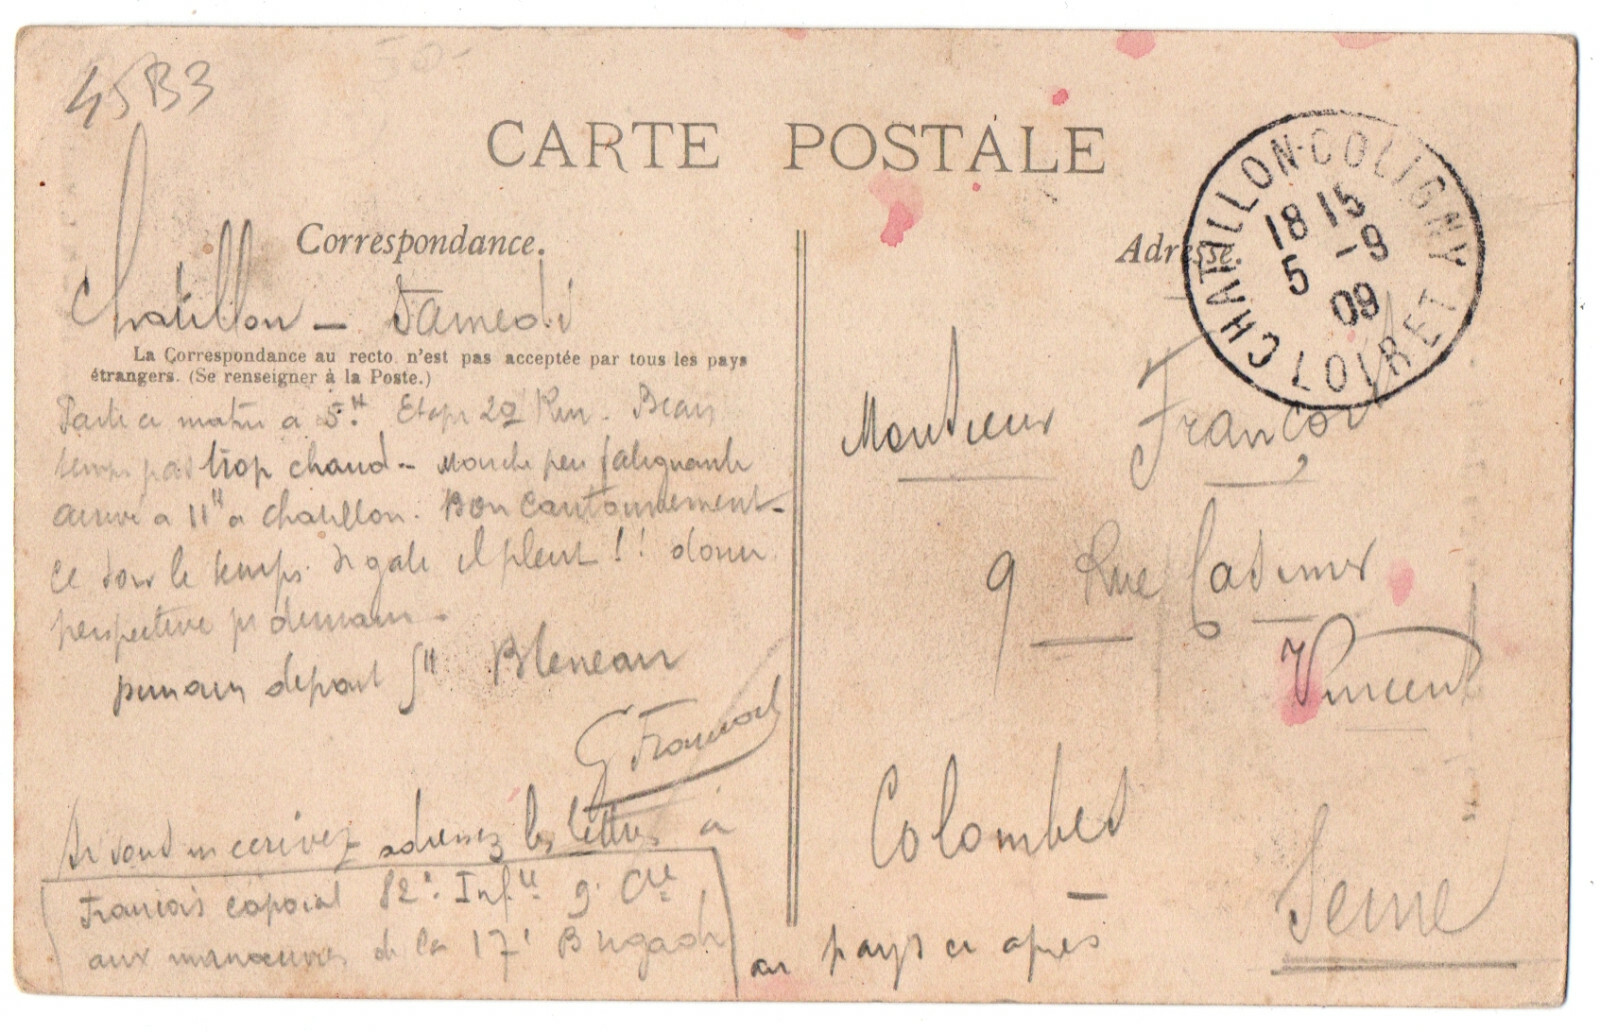 45B3
CARTE POSTALE
Correspondance.
Chatillon - Samedi
La Correspondance au recto n'est pas acceptée par tous les pays
étrangers. (Se renseigner à la Poste.)
Parti ce matin a 5H. Etape 29 Km. Beau
temps pas trop chaud - Marche peu fatiguante
arrivé a 11H a Chatillon. Bon Cantonnement -
ce soir le temps se gate il pleut !! donne
perspective pr demain -
demain depart 5H Bleneau
G François
Si vous m ecrivez adressez les lettres à
François caporal 82e. Infie 9e Cie
aux manœuvres de la 17e Brigade
au pays ci après
Adresse.
CHATILLON-COLIGNY
18 15
5 -9
09
LOIRET
Monsieur François
9 Rue Casimir
Vincent
Colombes
Seine